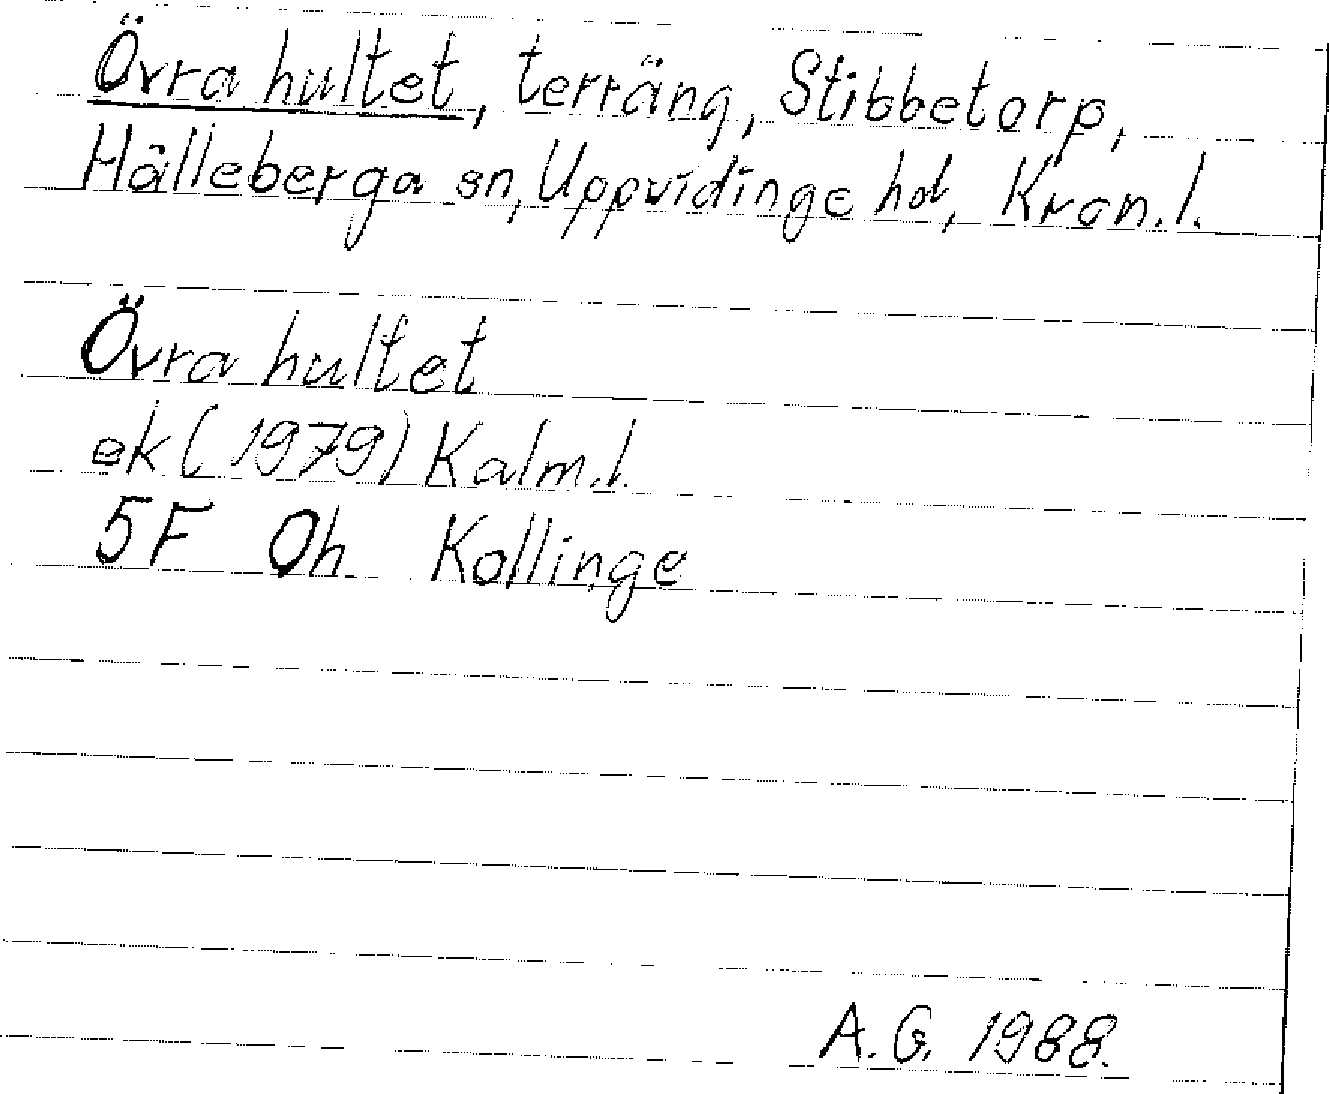 Övra hultet, terräng, Stibbetorp,
Hälleberga sn, Uppvidinge hd, Kron.l.
Övra hultet
ek (1979) Kalm.l.
5F Oh Kollinge
A.G. 1988.